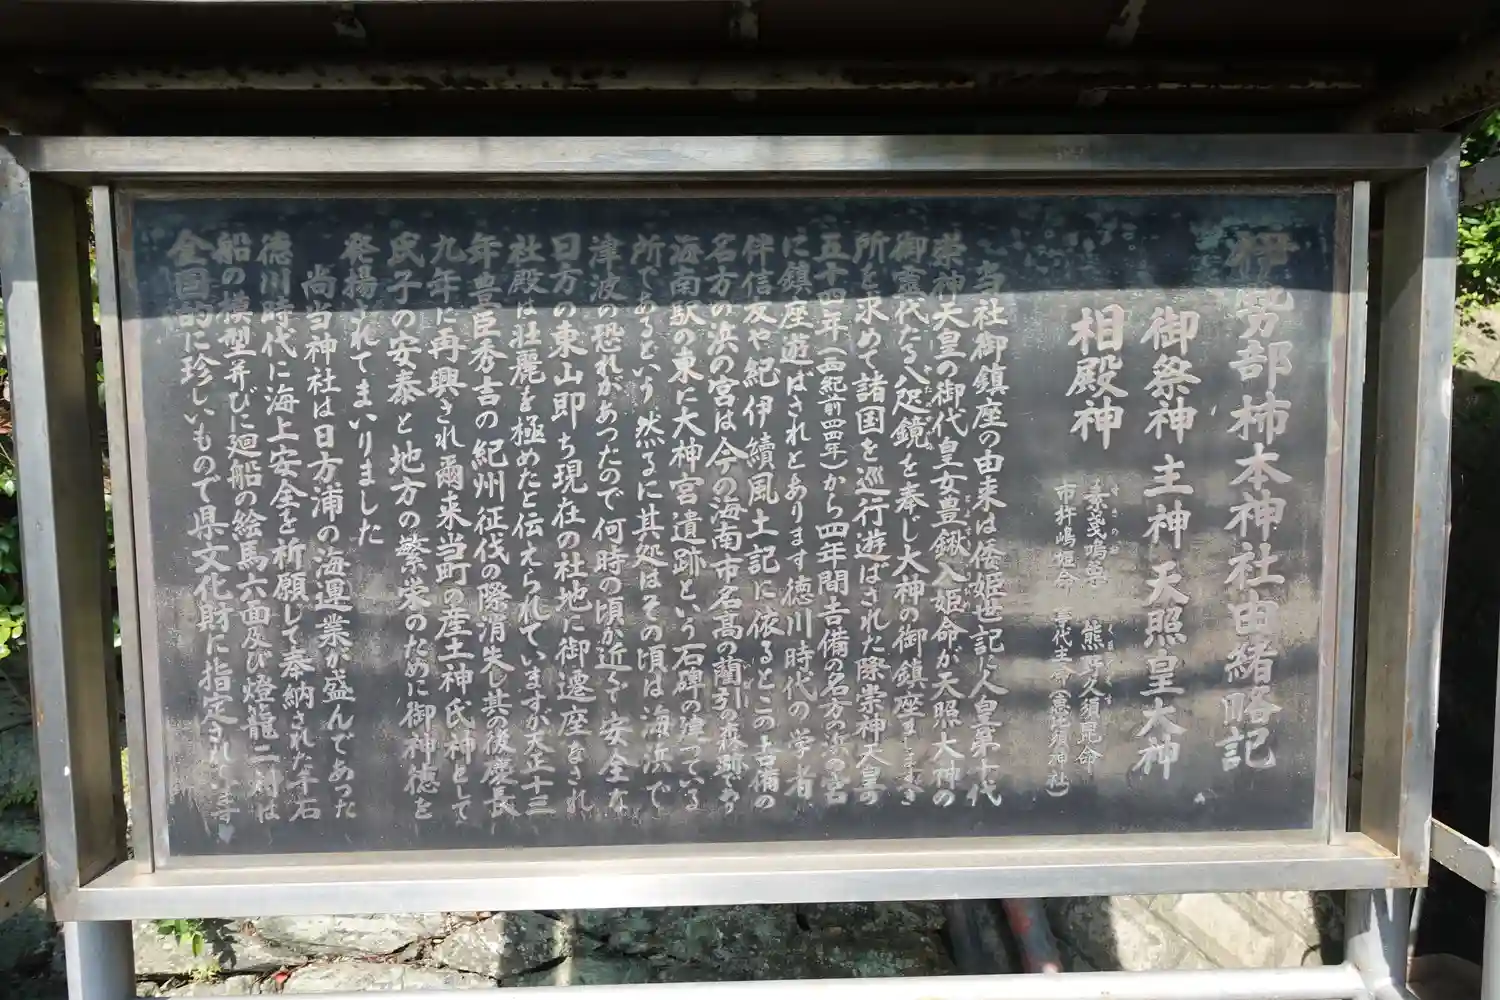 伊勢部柿本神社由緒略記
御祭神 主神 天照皇大神
相殿神
素戔嗚尊 熊野久須毘命
市杵嶋姫命 事代主命(恵比須神社)
当社御鎮座の由来は倭姫世記に人皇第十代
崇神天皇の御代皇女豊鍬入姫命が天照大神の
御霊代なる八咫鏡を奉じ大神の御鎮座ましますべき
所を求めて諸国を巡行遊ばされた際崇神天皇の
五十四年(西紀前四四年)から四年間吉備の名方の浜の宮
に鎮座遊ばされとあります徳川時代の学者
伴信友や紀伊續風土記に依るとこの吉備の
名方の浜の宮は今の海南市名高の藺引の森
海南駅の東に大神宮遺跡という石碑の建っている
所であるという 然るに其処はその頃は海浜で
津波の恐れがあつたので何時の頃か近くて安全な
日方の東山即ち現在の社地に御遷座なされ
社殿は壮麗を極めたと伝えられていますが天正十三
年豊臣秀吉の紀州征伐の際消失し其の後慶長
九年に再興され爾来当町の産土神氏神として
氏子の安泰と地方の繁栄のために御神徳を
発揚されてまいりました
尚当神社は日方浦の海運業が盛んであった
徳川時代に海上安全を祈願して奉納された千石
船の模型并びに廻船の絵馬六面及び燈籠二対は
全国的に珍しいもので県文化財に指定されて